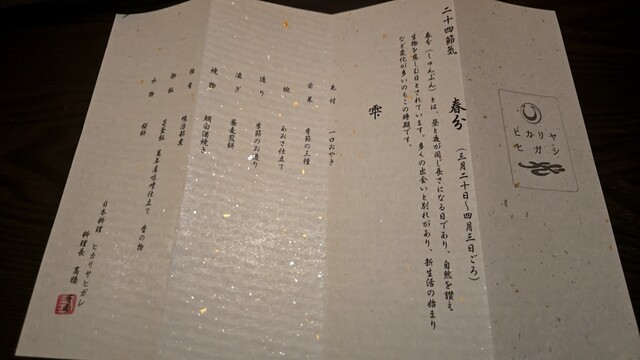 ヒカリヤ
ヒガシ
二十四節気
春分
(三月二十日~四月三日ごろ)
春分(しゅんぶん)とは、昼と夜が同じ長さになる日であり、自然を讃え
生物を慈しむ日とされています。多くの出会いと別れがあり、新生活の始まり
など変化が多いのもこの時期です。
雫
先付 一口おやき
前菜 季節の三種
椀 あおさ仕立て
造り 季節のお造り
凌ぎ 蕎麦
焼物 鯛
御飯
水物
香の物
日本料理 ヒカリヤヒガシ
料理長 高橋